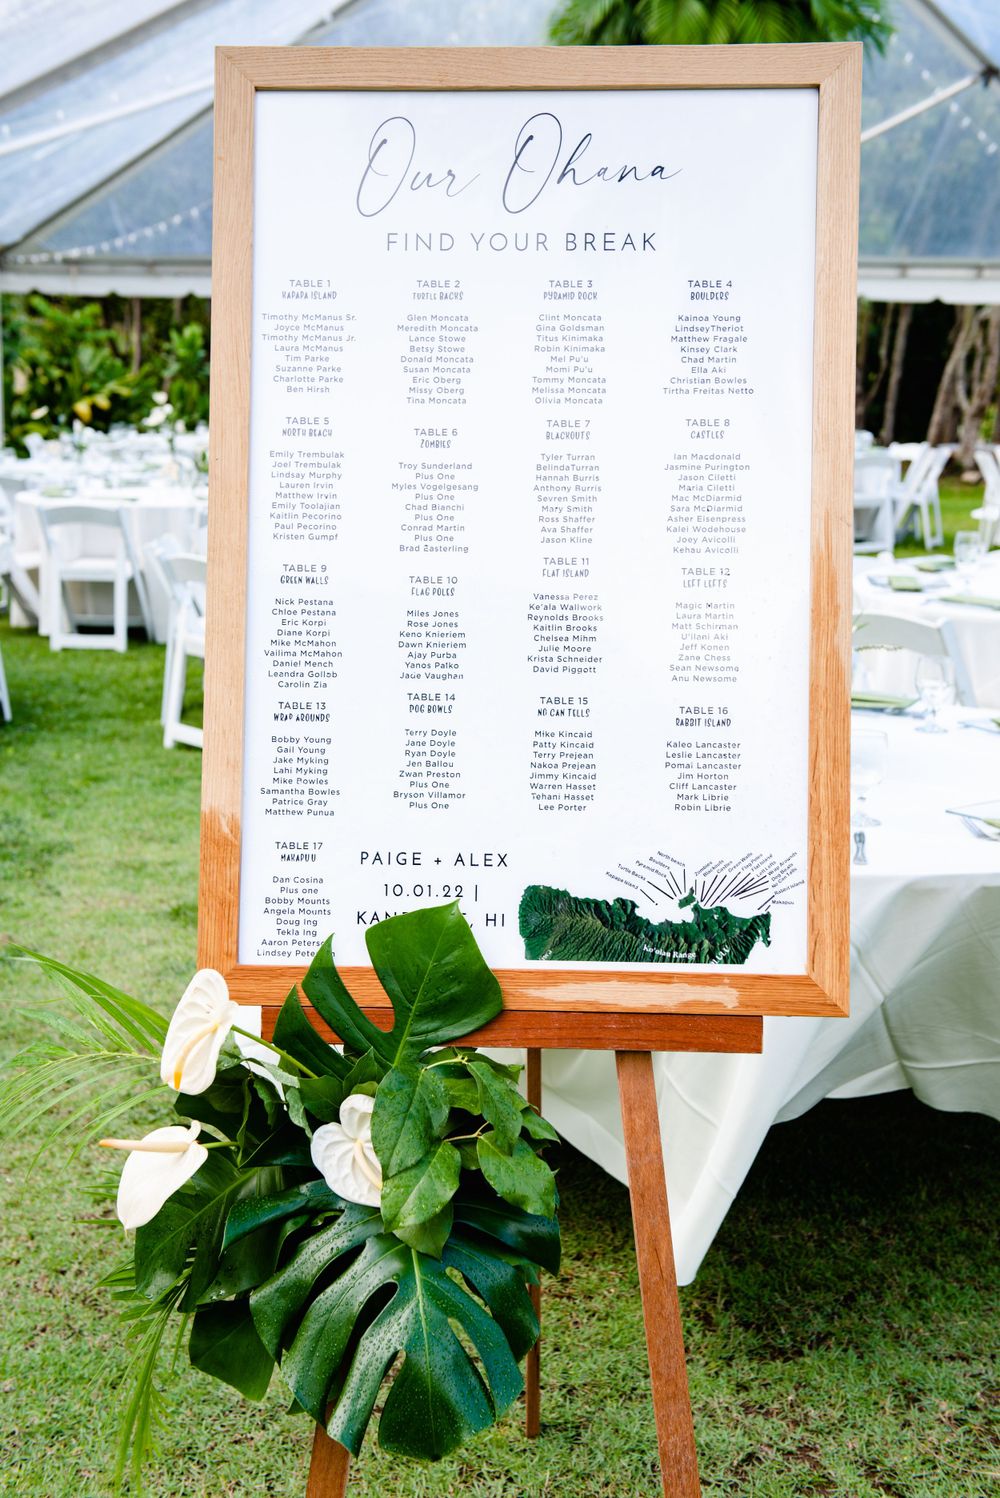 Our Ohana
FIND YOUR BREAK
TABLE 1
KAPAPA ISLAND
Timothy McManus Sr.
Joyce McManus
Timothy McManus Jr.
Laura McManus
Tim Parke
Suzanne Parke
Charlotte Parke
Ben Hirsh
TABLE 2
TURTLE BACKS
Glen Moncata
Meredith Moncata
Lance Stowe
Betsy Stowe
Donald Moncata
Susan Moncata
Eric Oberg
Missy Oberg
Tina Moncata
TABLE 3
PYRAMID ROCK
Clint Moncata
Gina Goldsman
Titus Kinimaka
Robin Kinimaka
Mel Pu'u
Momi Pu'u
Tommy Moncata
Melissa Moncata
Olivia Moncata
TABLE 4
BOULDERS
Kainoa Young
LindseyTheriot
Matthew Fragale
Kinsey Clark
Chad Martin
Ella Aki
Christian Bowles
Tirtha Freitas Netto
TABLE 5
NORTH BEACH
Emily Trembulak
Joel Trembulak
Lindsay Murphy
Lauren Irvin
Matthew Irvin
Emily Toolajian
Kaitlin Pecorino
Paul Pecorino
Kristen Gumpf
TABLE 6
ZOMBIES
Troy Sunderland
Plus One
Myles Vogelgesang
Plus One
Chad Bianchi
Plus One
Conrad Martin
Plus One
Brad Zasterling
TABLE 7
BLACKOUTS
Tyler Turran
BelindaTurran
Hannah Burris
Anthony Burris
Sevren Smith
Mary Smith
Ross Shaffer
Ava Shaffer
Jason Kline
TABLE 8
CASTLES
Ian Macdonald
Jasmine Purington
Jason Ciletti
Maria Ciletti
Mac McDiarmid
Sara McDiarmid
Asher Eisenpress
Kalei Wodehouse
Joey Avicolli
Kehau Avicolli
TABLE 9
GREEN WALLS
Nick Pestana
Chloe Pestana
Eric Korpi
Diane Korpi
Mike McMahon
Vailima McMahon
Daniel Mench
Leandra Gollob
Carolin Zia
TABLE 10
FLAG POLES
Miles Jones
Rose Jones
Keno Knieriem
Dawn Knieriem
Ajay Purba
Yanos Palko
Jade Vaughan
TABLE 11
FLAT ISLAND
Vanessa Perez
Ke'ala Wallwork
Reynolds Brooks
Kaitlin Brooks
Chelsea Mihm
Julie Moore
Krista Schneider
David Piggott
TABLE 12
LEFT LEFTS
Magic Martin
Laura Martin
Matt Schirman
U'ilani Aki
Jeff Konen
Zane Chess
Sean Newsome
Anu Newsome
TABLE 13
WRAP AROUNDS
Bobby Young
Gail Young
Jake Myking
Lahi Myking
Mike Bowles
Samantha Bowles
Patrice Gray
Matthew Punua
TABLE 14
DOG BOWLS
Terry Doyle
Jane Doyle
Ryan Doyle
Jen Ballou
Zwan Preston
Plus One
Bryson Villamor
Plus One
TABLE 15
NO CAN TELLS
Mike Kincaid
Patty Kincaid
Terry Prejean
Nakoa Prejean
Jimmy Kincaid
Warren Hasset
Tehani Hasset
Lee Porter
TABLE 16
RABBIT ISLAND
Kaleo Lancaster
Leslie Lancaster
Pomai Lancaster
Jim Horton
Cliff Lancaster
Mark Librie
Robin Librie
TABLE 17
MAKAPU U
Dan Cosina
Plus one
Bobby Mounts
Angela Mounts
Doug Ing
Tekla Ing
Aaron
Lindsey
PAIGE + ALEX
10.01.22 |
HI
Kapapa Island
Turtle Backs
Pyramid Rock
Boulders
North beach
Zombies
Blackouts
Castles
Green Walls
Flag Poles
Flat Island
Left Lefts
Wrap Arounds
Dog Bowls
No Can Tells
Rabbit Island
Makapuu
Ko'olau Range